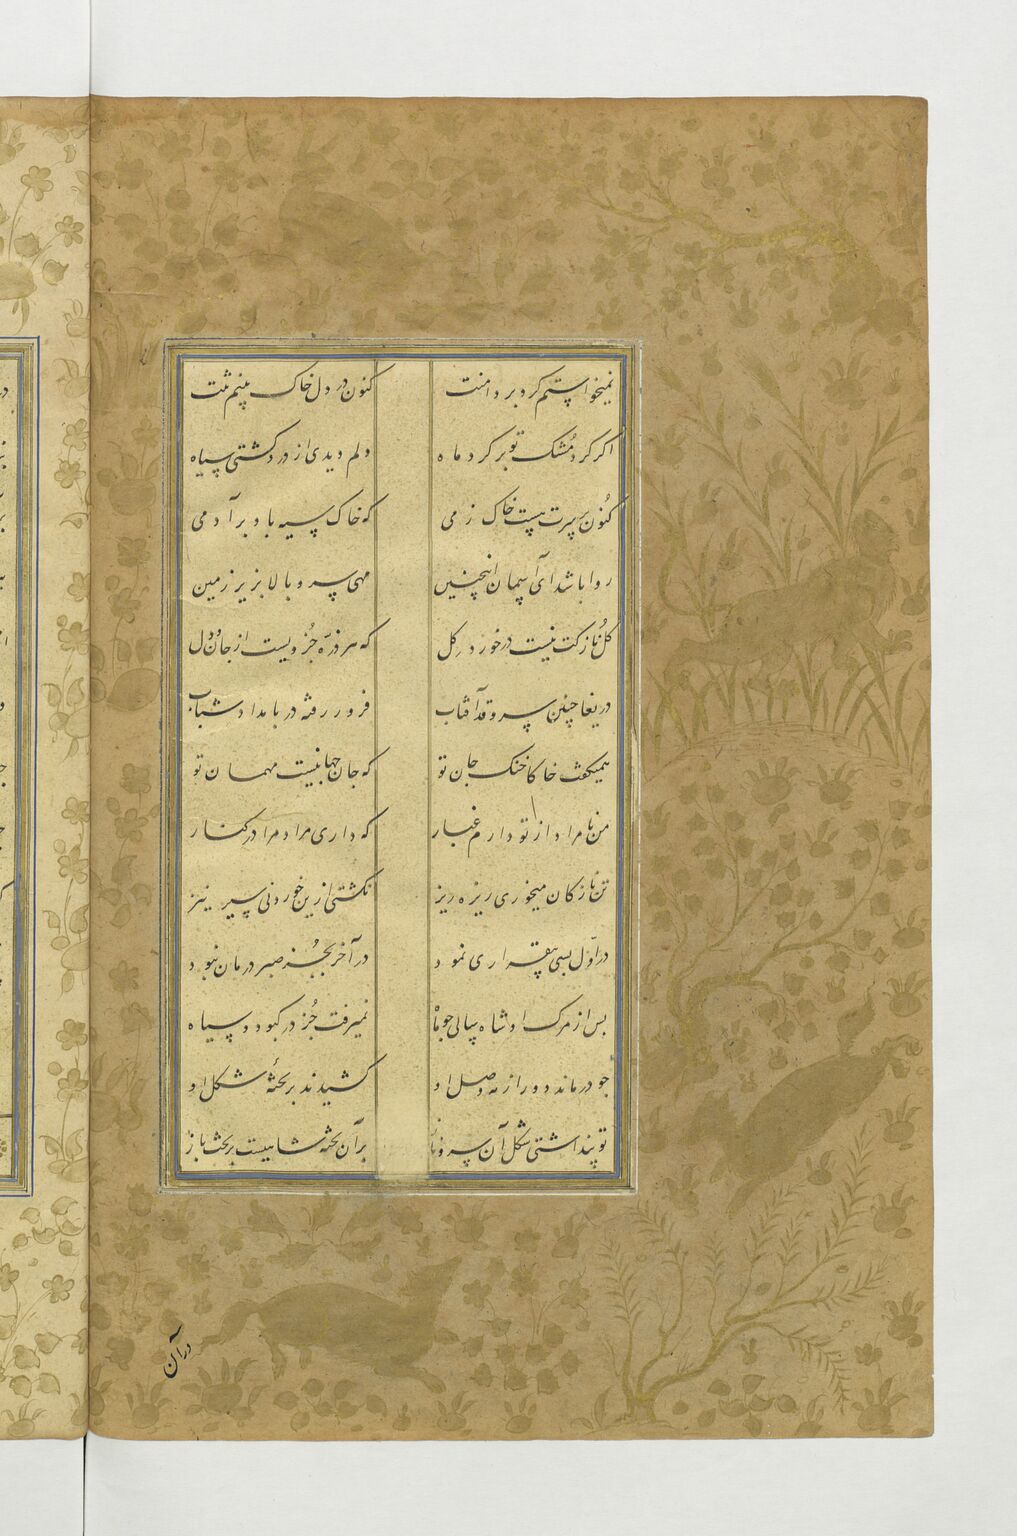 نمیخواستم گرد بر دامنت کنون در دل خاک بینم تنت
اگر گرد مشک تو بر گرد ماه دلم دیدی از درد گشتی سیاه
کنون بر سرت هست خاک زمی که خاک سیه باد بر آدمی
روا باشد ای آسمان اینچنین مهی سرو بالا بزیر زمین
گل نازکت نیست در خورد گل که هر ذره جزویست از جان و دل
دریغا چنین سرو قد آفتاب فرو رفته در بامداد شباب
همیگفت خاکا خنک جان تو که جان جهانیست مهمان تو
من نامراد از تو دارم غبار که داری مراد مرا در کنار
تن نازکان میخوری ریزه ریز نگشتی ازین خوردنی سیر نیز
در اول بسی بیقراری نمود در آخر بجز صبر درمان نبود
پس از مرگ او شاه سالی چو ماه نمیرفت جز در کبود و سیاه
چو درمانده دور از مه وصل او کشیدند بر تخته شکل او
تو پنداشتی شکل آن سرو ناز بر آن تخته شاهیست بر تخت باز
در آن